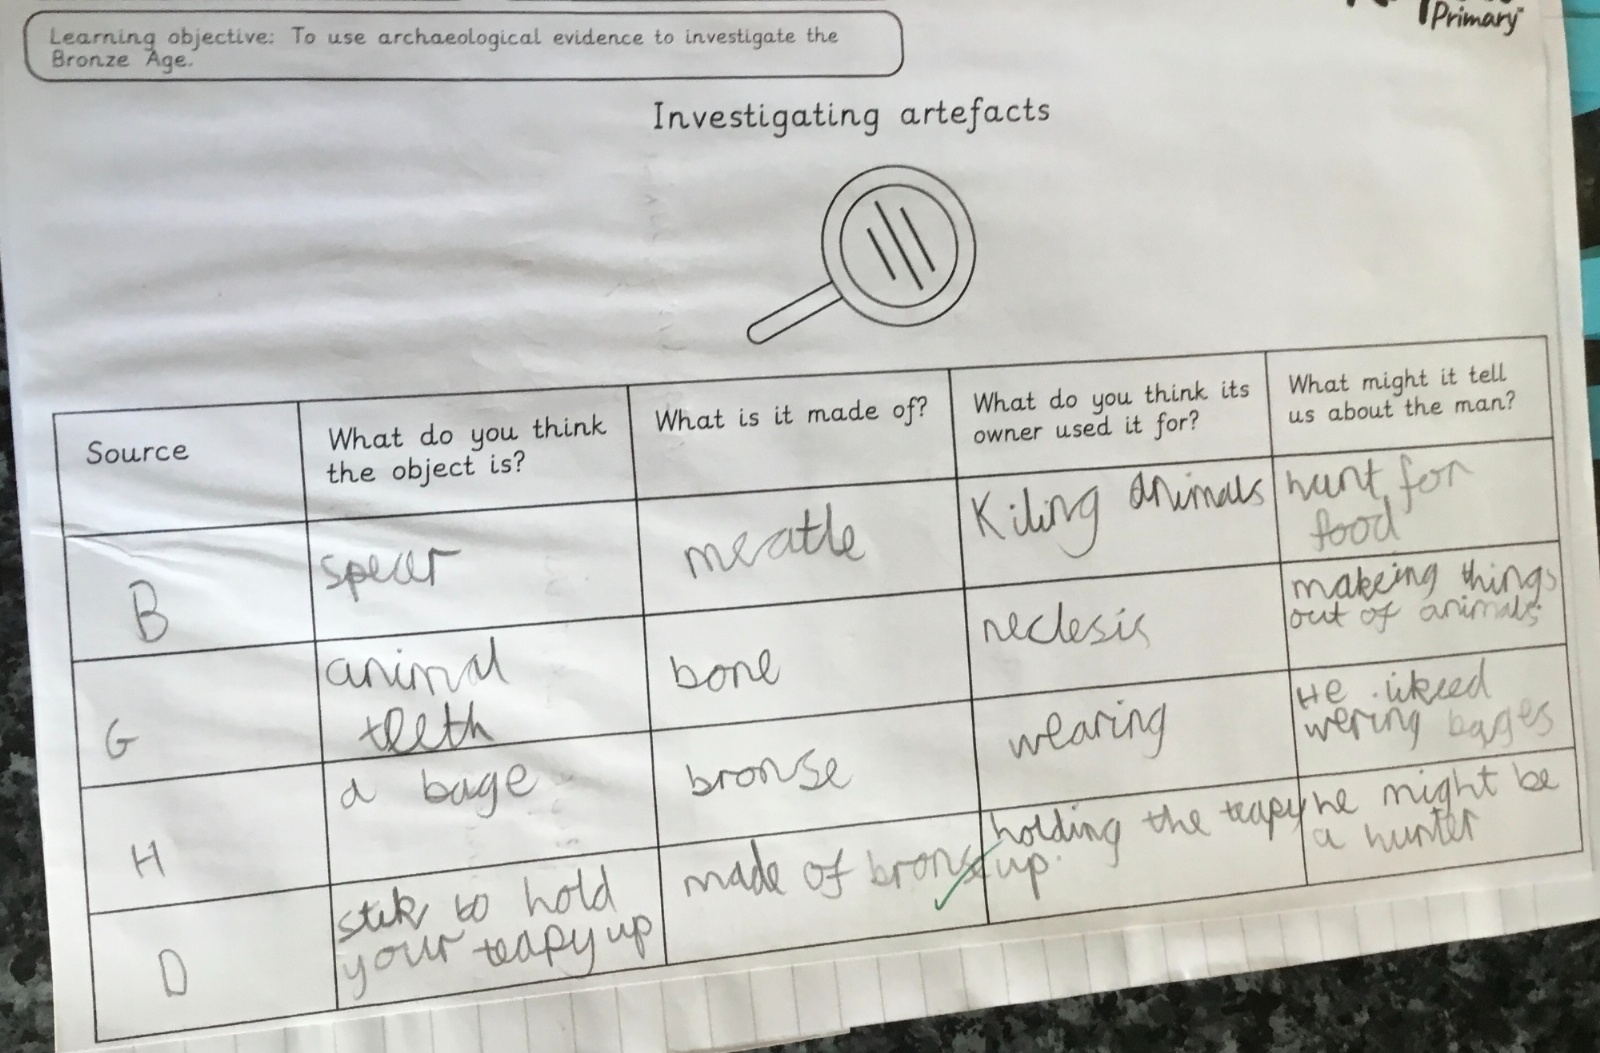 Primary
Learning objective: To use archaeological evidence to investigate the
Bronze Age.
Investigating artefacts
Source
What do you think
the object is?
What is it made of?
What do you think its
owner used it for?
What might it tell
us about the man?
B
spear
meatle
Kiling animals
hunt for
food
G
animal
teeth
bone
neclesis
makeing things
out of animals.
H
a bage
bronse
wearing
He likeed
wering bages
D
stik to hold
your teapy up
made of bronse
holding the teapy
up.
he might be
a hunter